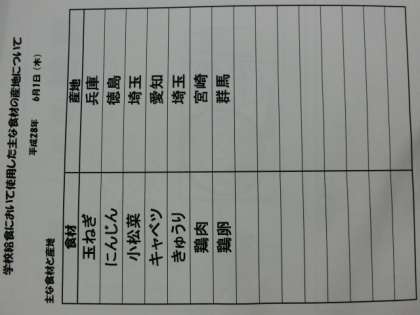 学校給食において使用した主な食材の産地について
平成28年 6月1日（木）
主な食材と産地
食材 産地
玉ねぎ 兵庫
にんじん 徳島
小松菜 埼玉
キャベツ 愛知
きゅうり 埼玉
鶏肉 宮崎
鶏卵 群馬